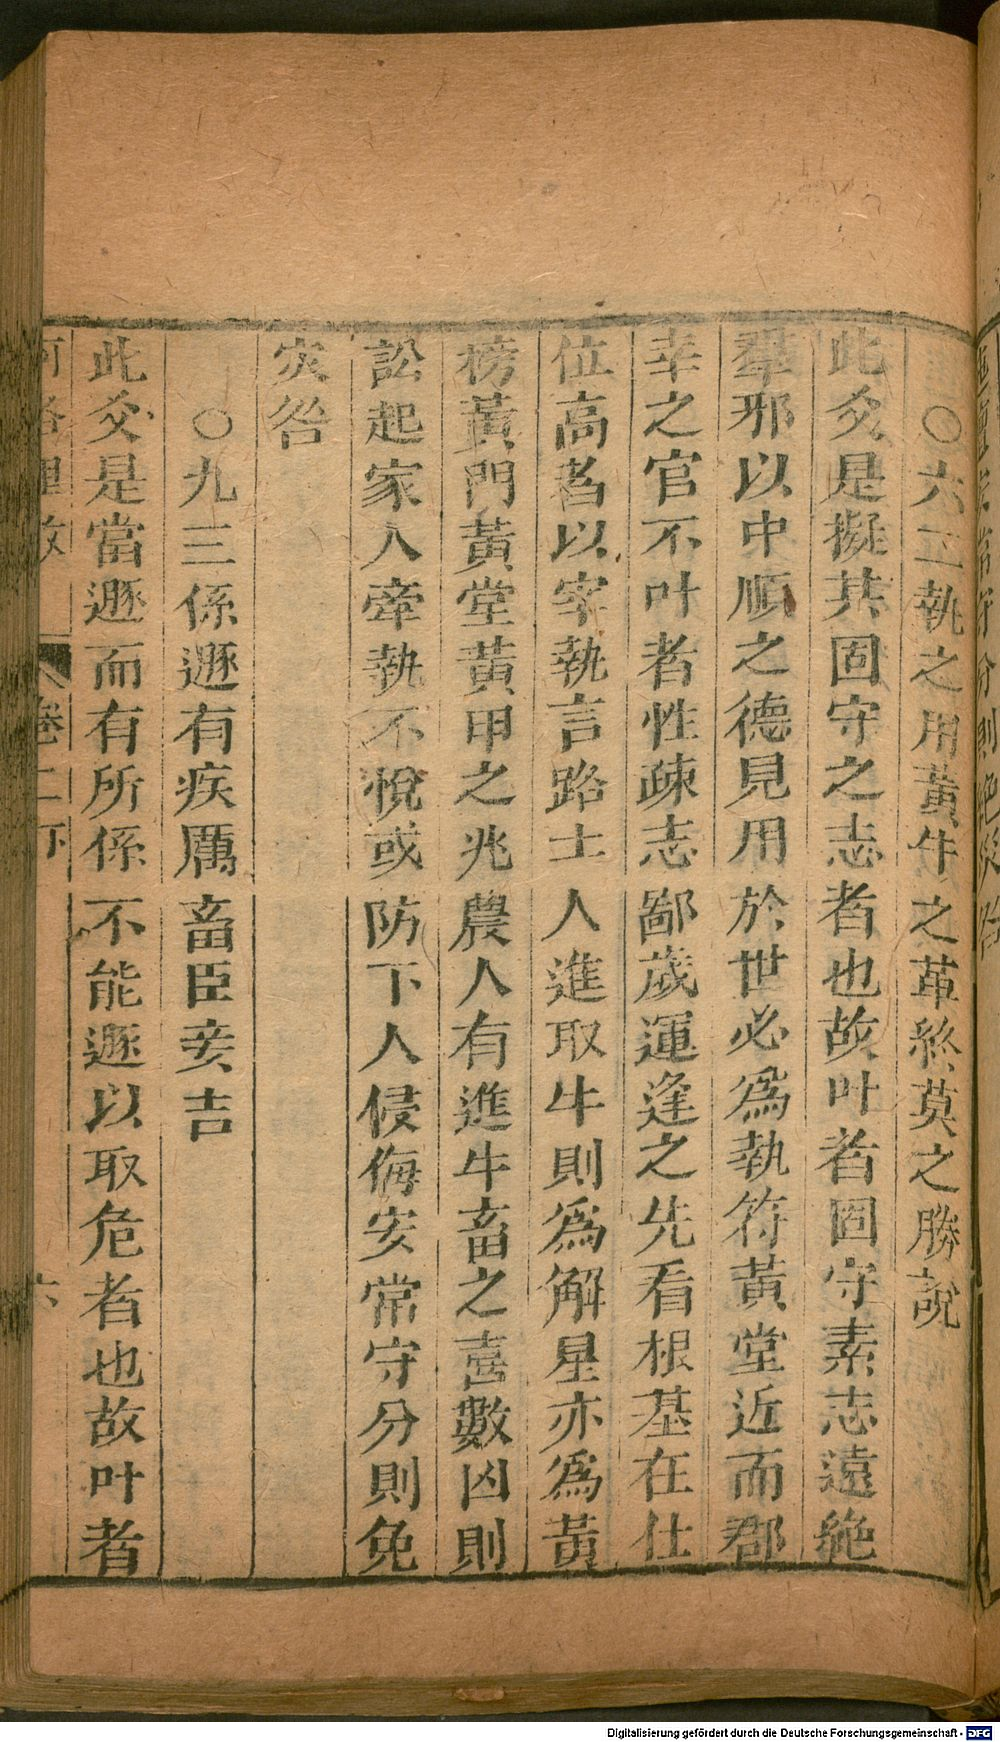 ○六二執之用黃牛之革終莫之勝說
此爻是擬其固守之志者也故叶者固守素志遠絶
羣邪以中順之德見用於世必爲執符黃堂近而郡
幸之官不叶者性疎志鄙歲運逢之先看根基在仕
位高者以宰執言路士人進取牛則爲解星亦爲黃
榜黃門黃堂黃甲之兆農人有進牛畜之喜數凶則
訟起家人牽執不悅或防下人侵侮安常守分則免
灾咎
○九三係遯有疾厲畜臣妾吉
此爻是當遯而有所係不能遯以取危者也故叶者
卷二下
六
Digitalisierung gefördert durch die Deutsche Forschungsgemeinschaft - DFG